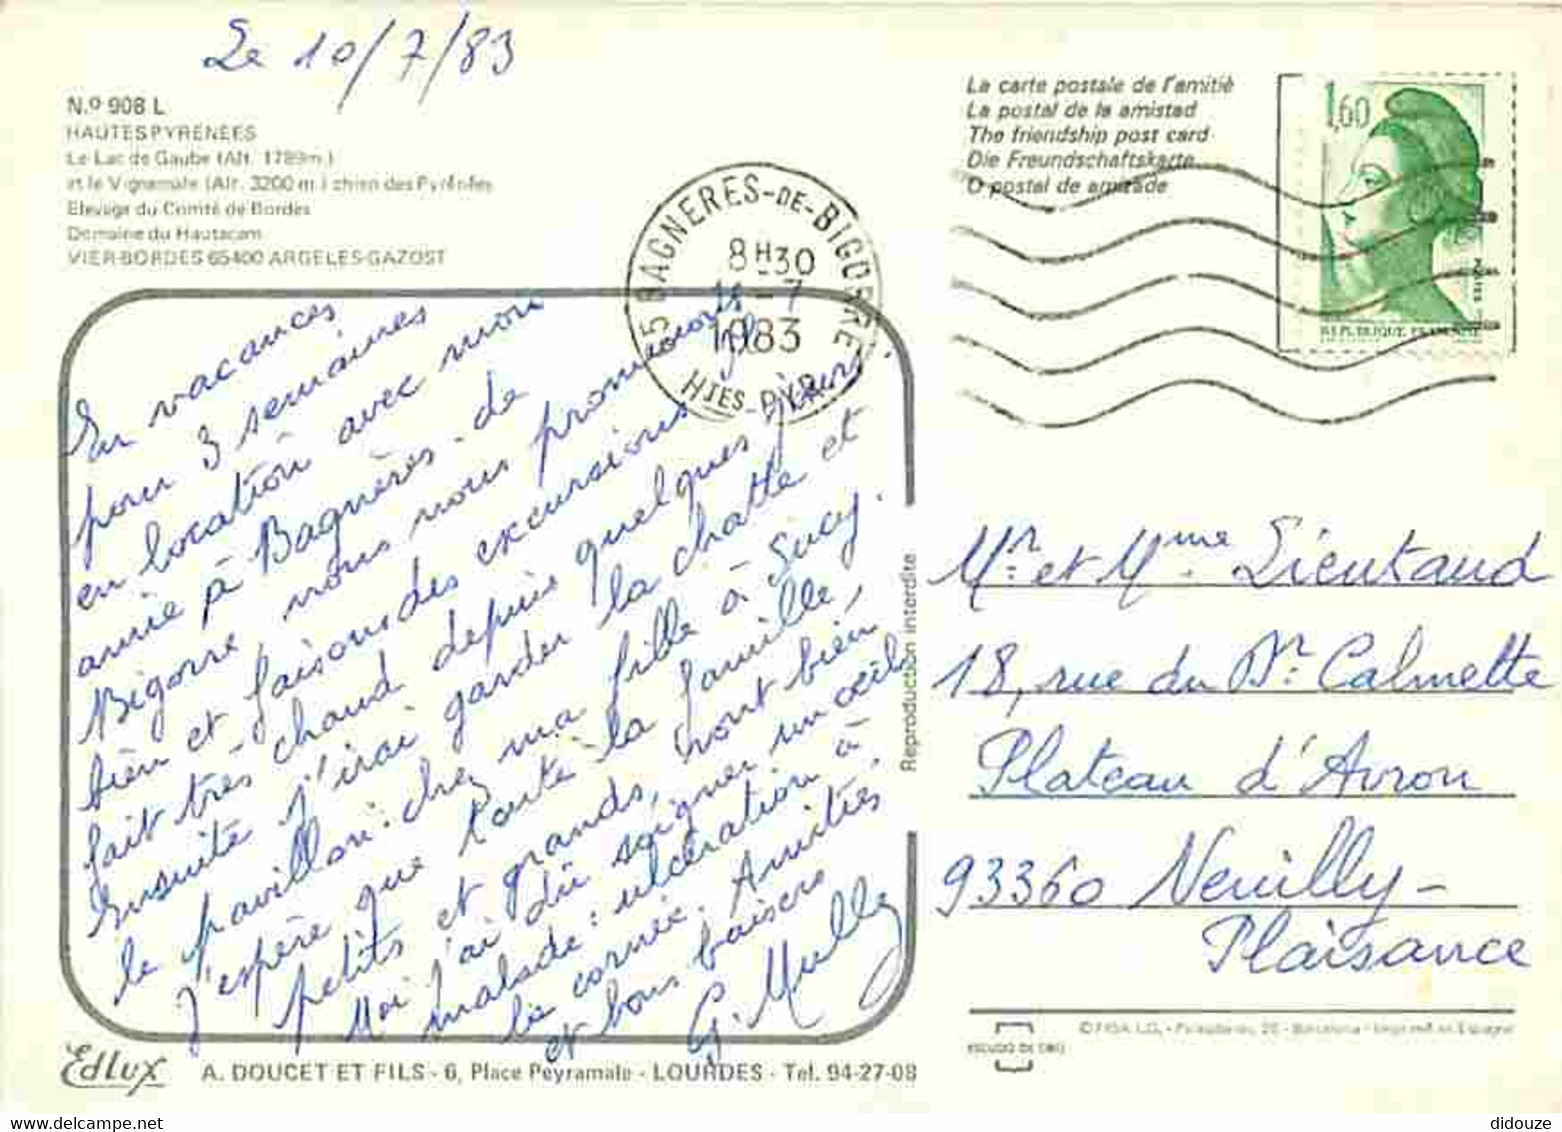 Le 10/7/83
N.º 908 L
HAUTES PYRENEES
Le Lac de Gaube (Alt. 1789m.)
et le Vignemale (Alt. 3200 m.) chien des Pyrénées
Elevage du Comté de Bordes
Domaine du Hautacam
VIER-BORDES 65400 ARGELES-GAZOST
La carte postale de l'amitiè
La postal de la amistad
The friendship post card
Die Freundschaftskarte
O postal de amizade
1,60
POSTES
REPUBLIQUE FRANÇAISE
65 BAGNERES-DE-BIGORRE
8H30
-7
1983
HTES PYR
En vacances
pour 3 semaines
en location avec mon
amie à Bagnères-de
Bigorre, nous nous promenons
bien et faisons des excursions. Il
fait très chaud depuis quelques jours
Ensuite j'irai garder la chatte et
le pavillon chez ma fille à Sucy.
J'espère que toute la famille,
petits et grands, vont bien
Moi j'ai dû soigner un œil
malade: ulcération à
la cornée. Amitiés
et bons baisers
G. Mully
Reproduction interdite
Mr. et Mme Lieutaud
18, rue du Dr. Calmette
Plateau d'Avron
93360 Neuilly-
Plaisance
Edlux
A. DOUCET ET FILS - 6, Place Peyramale - LOURDES - Tel. 94-27-08
ESCUDO DE ORO
© FISA I.G. - Palaudarias, 26 - Barcelona - Imprimé en Espagne
didouze